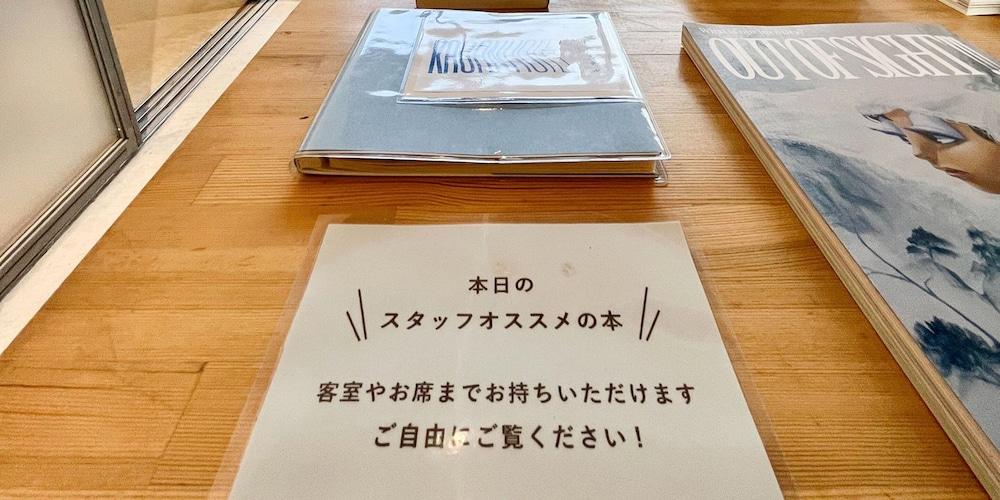 OUT OF SIGHT
本日の
スタッフオススメの本
客室やお席までお持ちいただけます
ご自由にご覧ください！